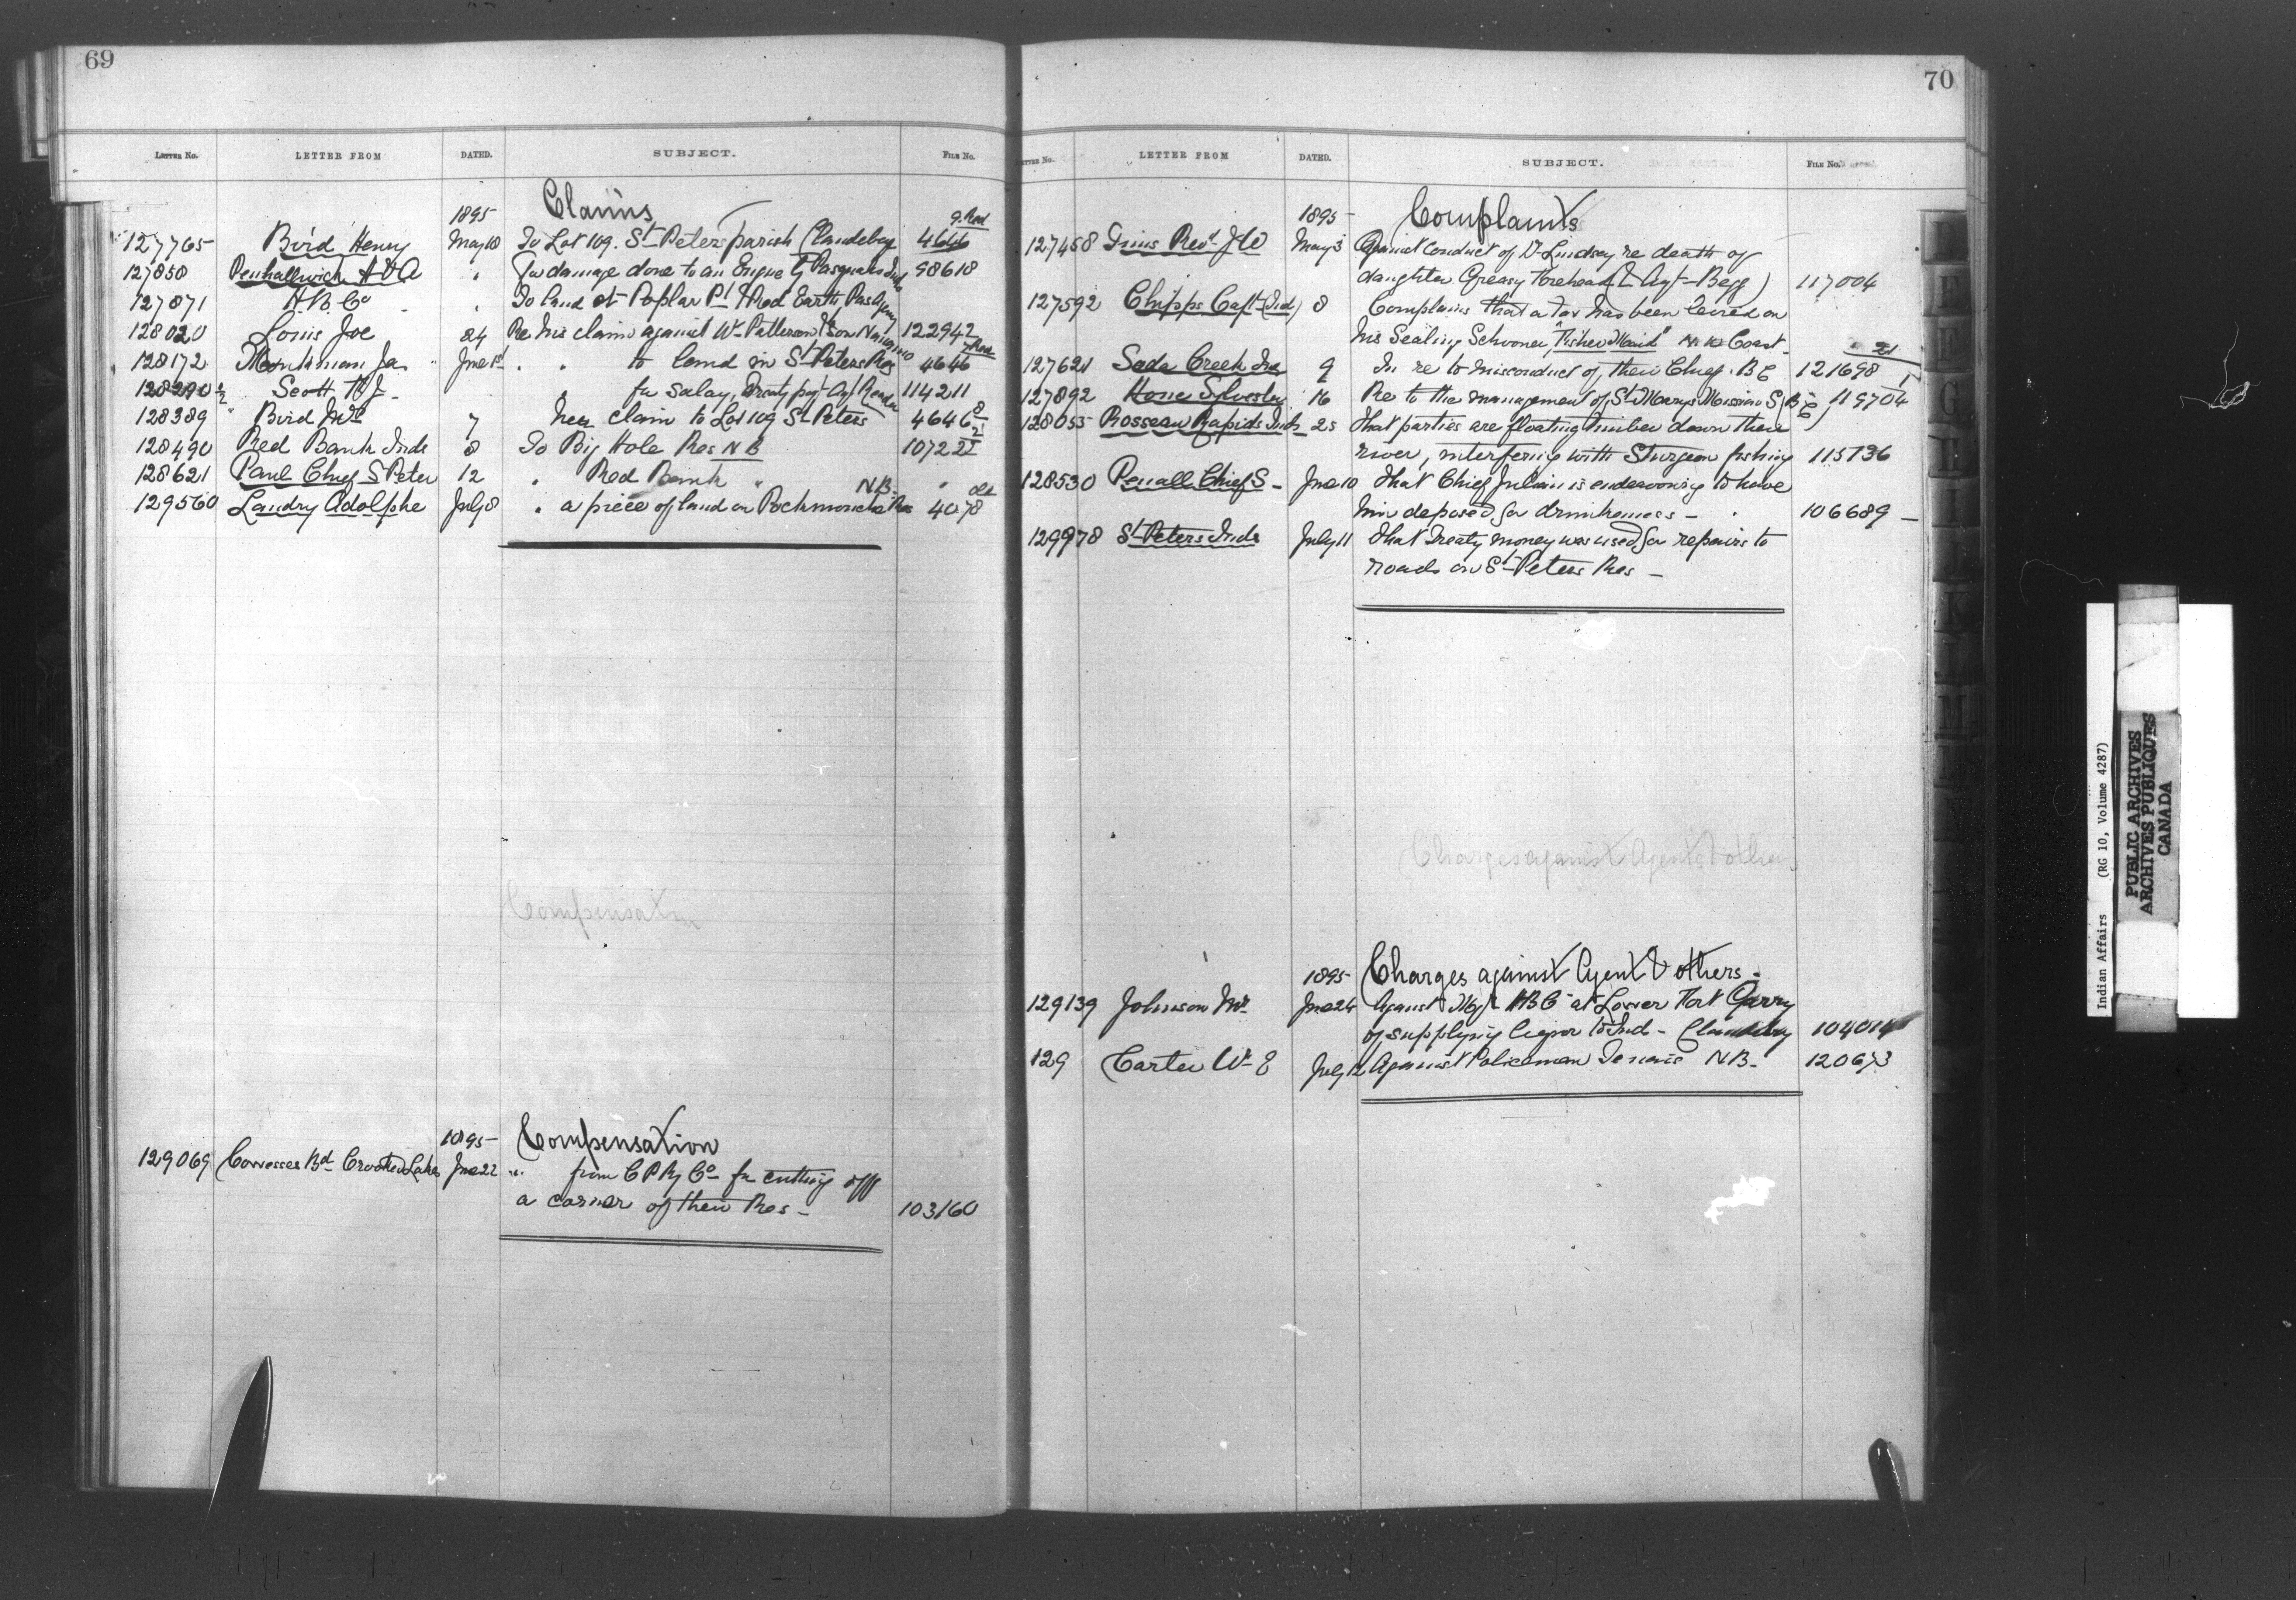 69
LETTER No. LETTER FROM DATED. SUBJECT. FILE No.
1895 Claims
127765 Bird Henry May 18 To Lot 109. St Peters parish (Clandeboy 4646
127850 Penhallwick H V A " For damage done to an Engine by Pasquahs Inds 98618
127871 H. B. Co " To land at Poplar Pt & Red Earth, Pas Agency
128020 Louis Joe 24 Re his claim against Wm Patterson & Son Nanaimo 122942
128172 Jas " June 1st " " to land in St Peters Res 4646
128290 1/2 Scott H J - for salary, Treaty pay Agt Reader 114211
128389 " Bird Mrs 7 her claim to Lot 109 St Peters 4646
128490 Red Bank Inds 8 To Big Hole Res N B 107221
128621 Paul Chief S Peter 12 " Red Bank " N.B. "
129560 Landry Adolphe July 8 " a piece of land on Pockmouche Res 4078
Compensation
1895 Compensation
129069 Cowesses Bd Crooked Lake June 22 " from C P Ry Co for cutting off
a corner of their Res - 103160
70
LETTER No. LETTER FROM DATED. SUBJECT. FILE No.
1895 Complaints
127458 Tims Revd J W May 3 Against conduct of Dr Lindsay re death of
daughter Greasy Forehead ( Agt - Begg) 117004
127592 Chipps Capt (Ind) 8 Complains that a tax has been levied on
his Sealing Schooner, "Fisher Maid" Coast
127621 Soda Creek Ins 9 In re to misconduct of their Chief. B C 121698
127892 Hone Sylvester 16 Re to the management of St Marys Mission S (B C) 119704
128055 Rosseau Rapids Inds 25 That parties are floating timber down there
river, interfering with Sturgeon fishing 115136
128530 Penall Chief S - June 10 That Chief Julian is endeavoring to have
him deposed for drunkeness - " 106689 -
129978 St Peters Inds July 11 That Treaty money was used for repairs to
roads on St Peters Res -
Charges against Agents & others
1895 Charges against Agent & others -
129139 Johnson Mr June 24 Against Mgr H B Co at Lower Fort Garry
of supplying liquor to Ind - Clandeboy 104014
129 Carter Wm E July 12 Against Policeman N B - 120673
D E F G H I J K L M
Indian Affairs (RG 10, Volume 4287)
PUBLIC ARCHIVES
ARCHIVES PUBLIQUES
CANADA